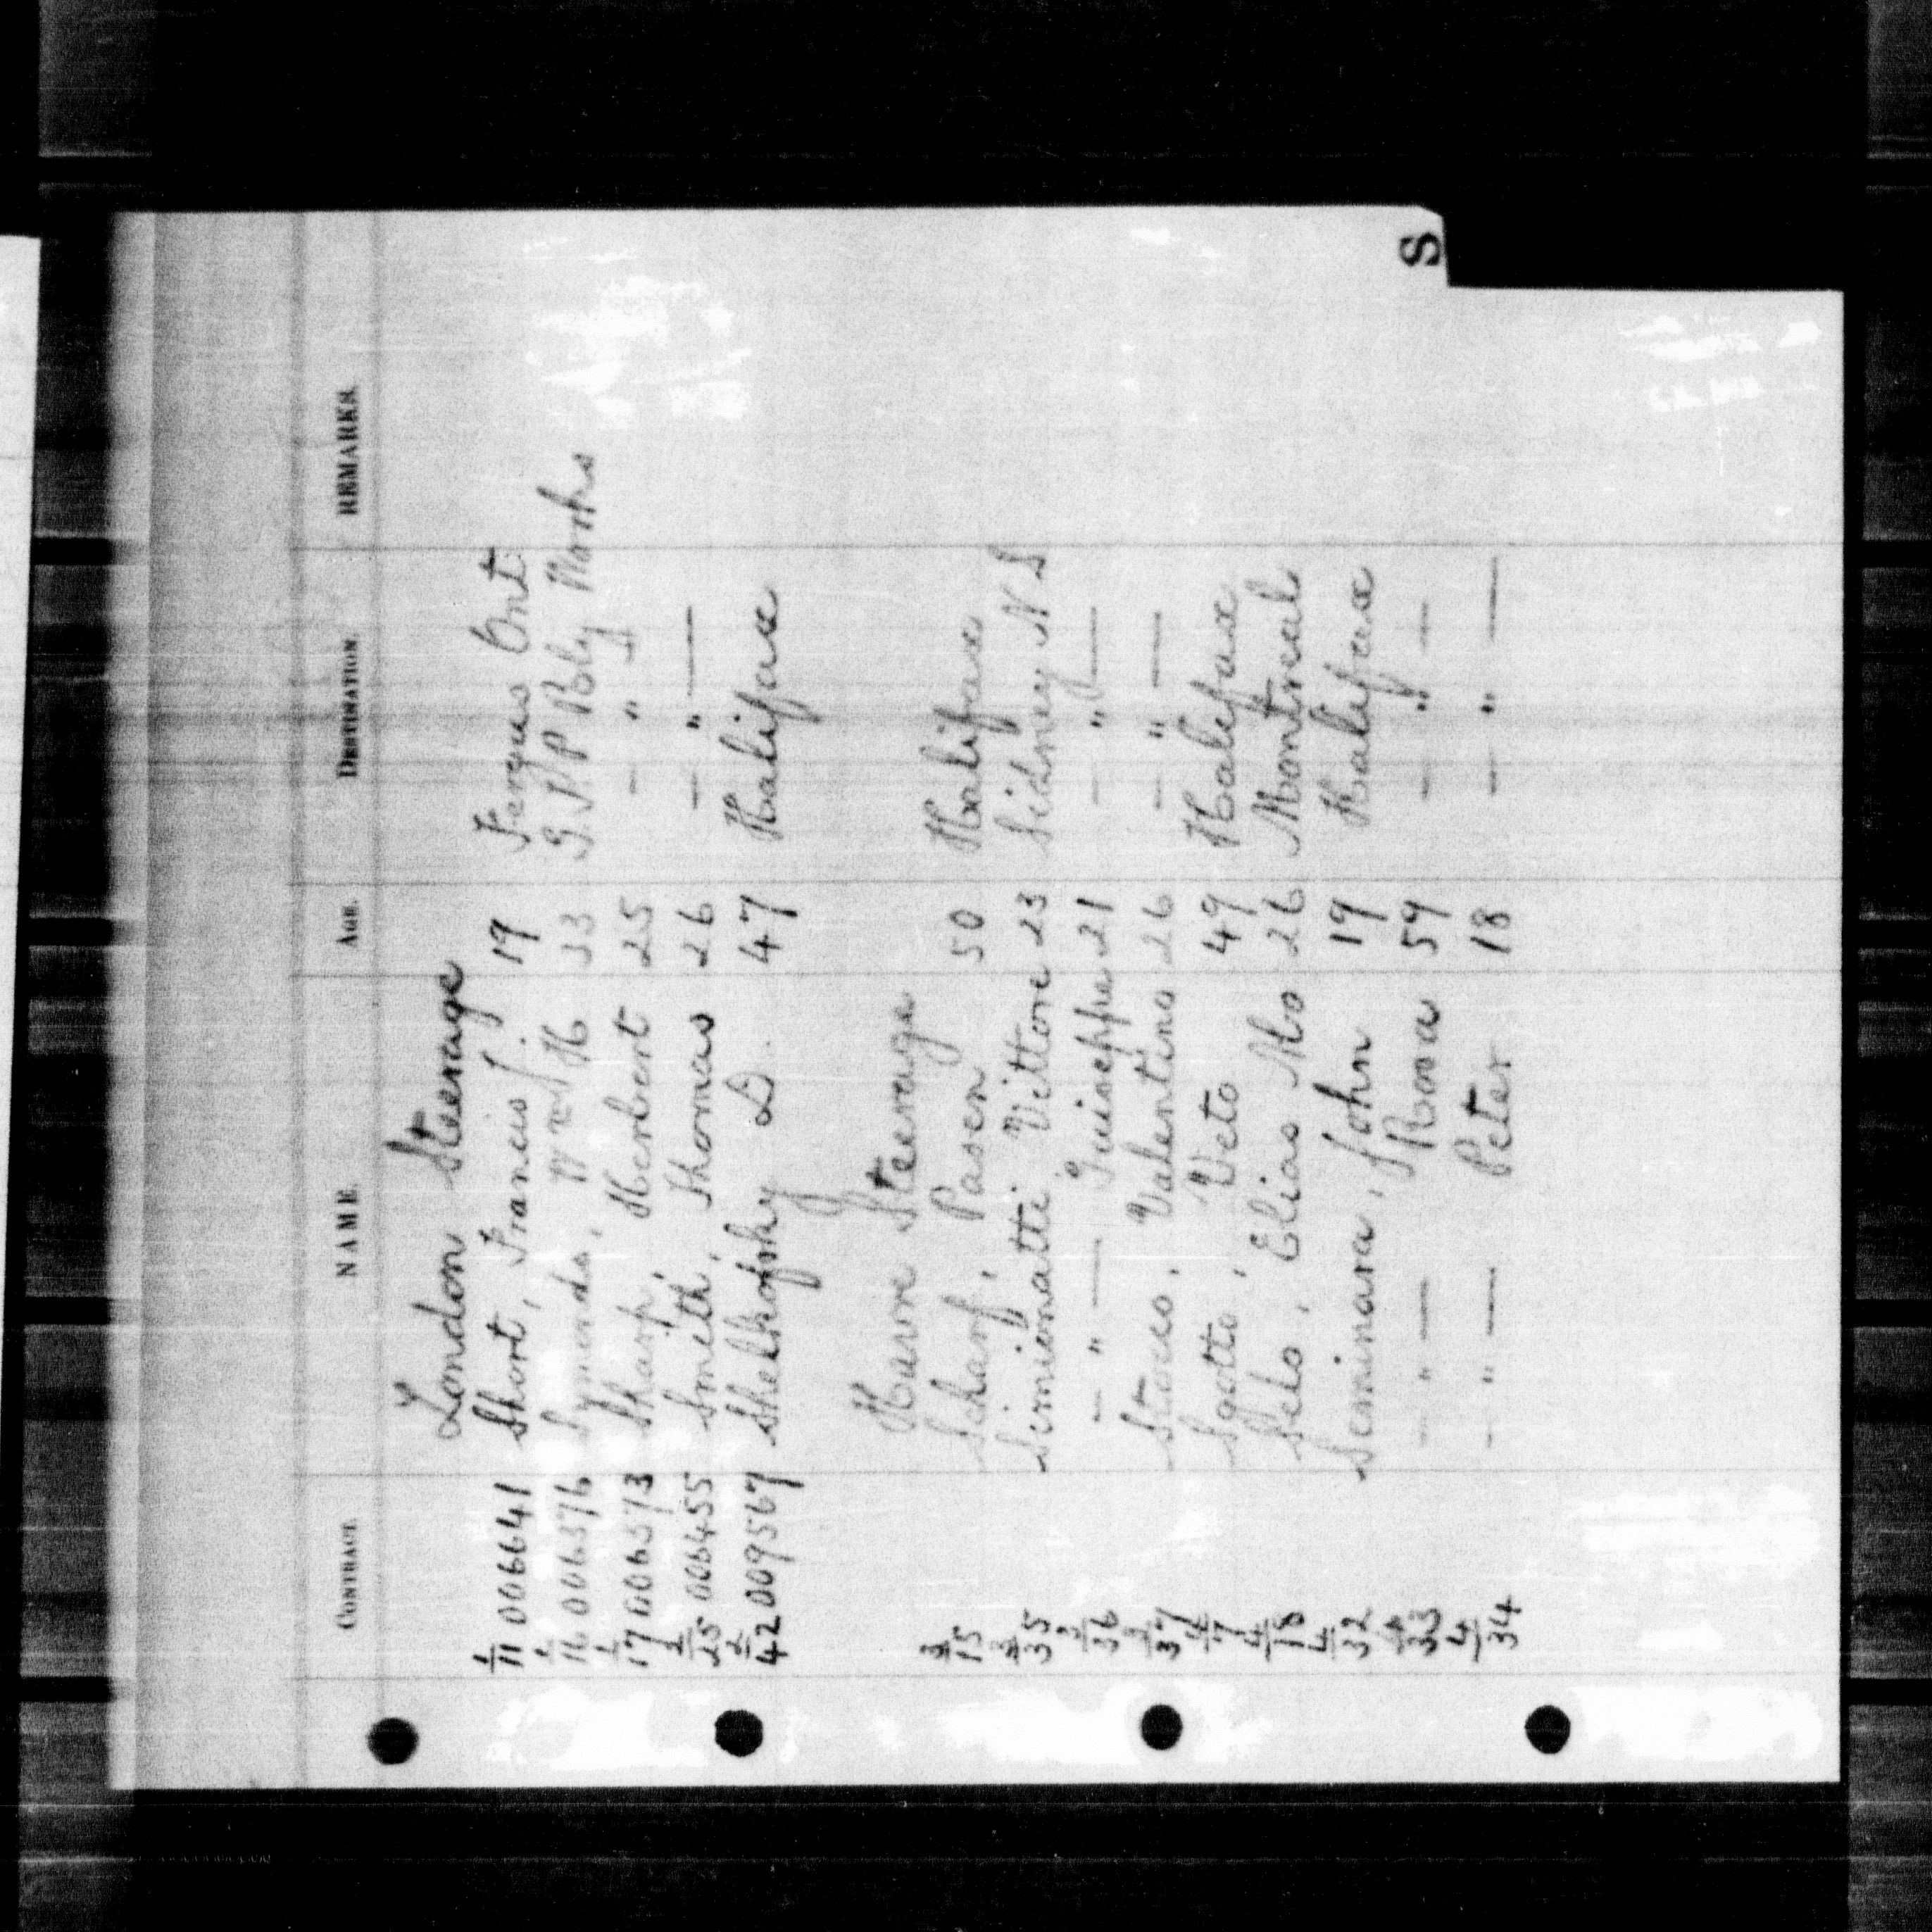 S
CONTRACT. NAME. AGE. DESTINATION. REMARKS.
London Steerage
1/11 006641 Short, Francis J. 19 Fergus Ont
1/16 006576 Symonds, H 33 G.P.P. Rly Works
1/17 006573 Sharp, Herbert 25 — " —
2/25 006455 Smith, Thomas 26 — " —
2/42 009567 D. 47 Halifax
Havre Steerage
3/15 Scharf, Pasen 50 Halifax
3/35 Simionatti Vittore 23 Sidney N S
3/36 — " — Guiseppe 21 — " —
3/37 Stocco, Valentino 26 — " —
4/7 Sgotto, Veto 49 Halifax
4/18 Selo, Elias Mo 26 Montreal
4/32 Seminara, John 19 Halifax
4/33 — " — Rosa 59 — " —
4/34 — " — Peter 18 — " —